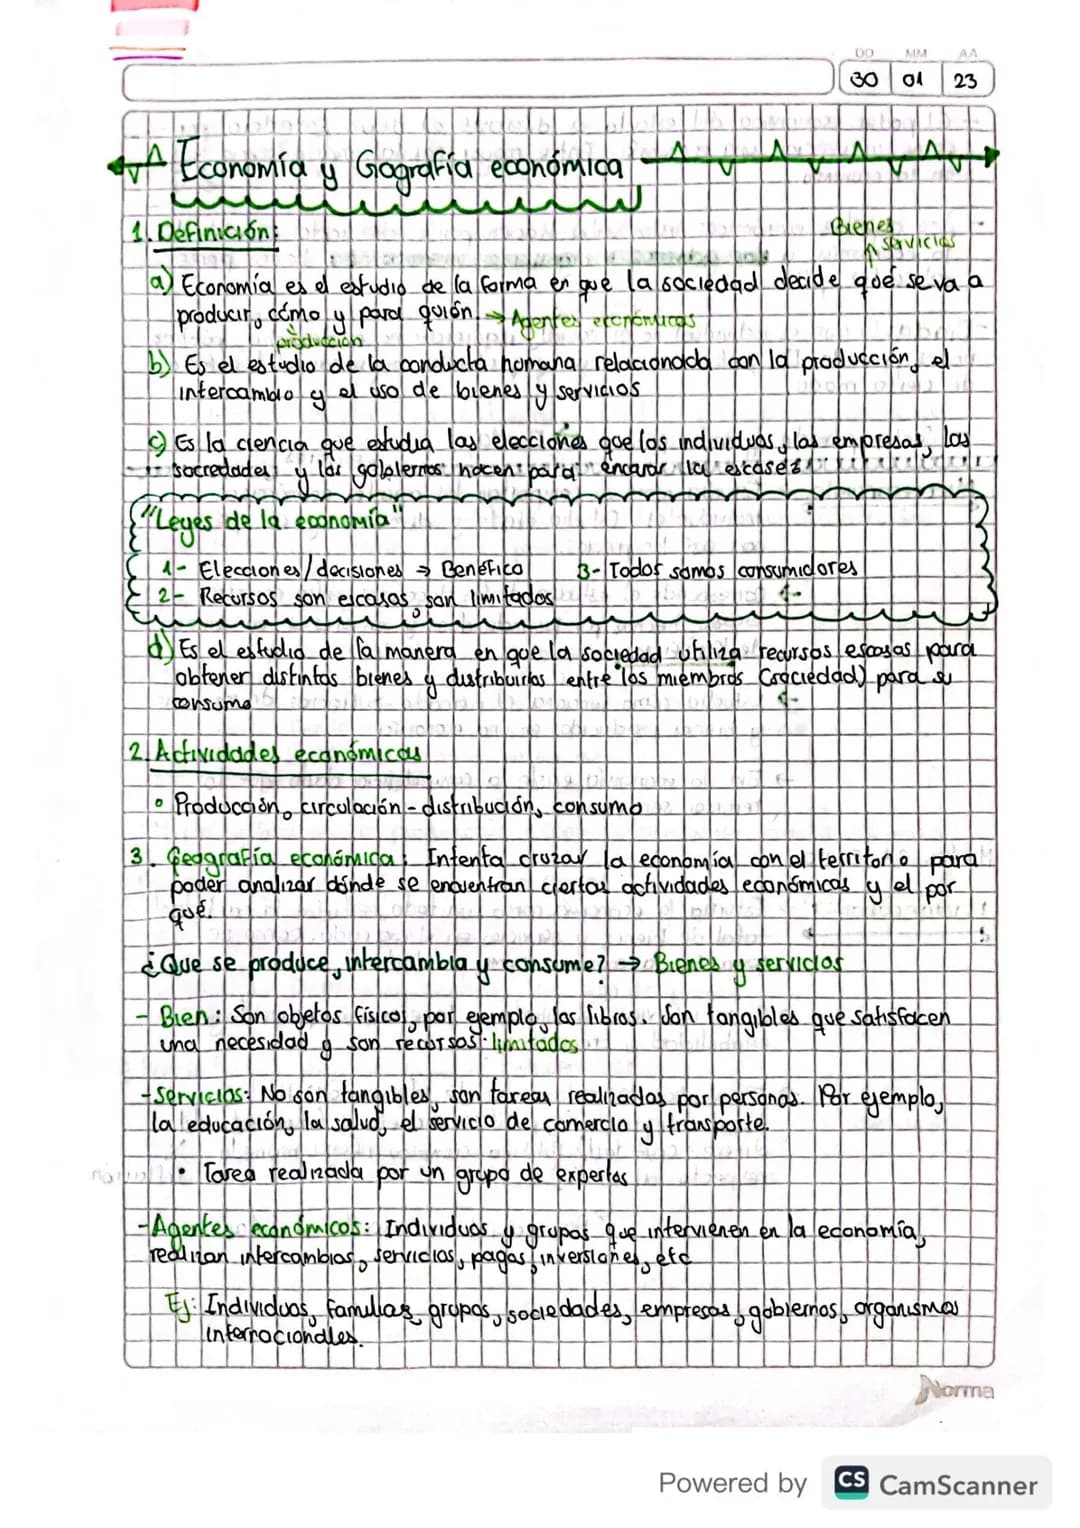 DD MM AA
30 01 23
Economía y Gografía económica
1. Definición:
Bienes
Servicios
a) Economía es el estudio de la forma en que la sociedad decide qué se va a
producir, cómo y para quién. → Agentes económicos
producción
b) Es el estudio de la conducta homana relacionada con la producción, el
intercambio y el uso de bienes y servicios
c) Es la ciencia que estudia las elecciones que los individuos, las empresas, las
sociedades y los gobiernos hacen para encarar la escasez
"Leyes de la economía"
1- Elecciones/decisiones → Benéfico 3- Todos somos consumidores
2- Recursos son escasos, son limitados
d) Es el estudio de la manera en que la sociedad utiliza recursos escasos para
obtener distintos bienes y distribuirlos entre los miembros (sociedad) para su
consumo
2. Actividades económicas
• Producción, circulación - distribución, consumo
3. Geografía económica: Intenta cruzar la economía con el territorio para
poder analizar dónde se encuentran ciertas actividades económicas y el por
qué.
¿Que se produce, intercambia y consume? → Bienes y servicios
- Bien: Son objetos físicos, por ejemplo, los libros. Son tangibles que satisfacen
una necesidad y son recursos limitados
- Servicios: No son tangibles, son tareas realizadas por personas. Por ejemplo,
la educación, la salud, el servicio de comercio y transporte.
• Tarea realizada por un grupo de expertos
- Agentes económicos: Individuos y grupos que intervienen en la economía,
realizan intercambios, servicios, pagos, inversiones, etc
Ej: Individuos, familias, grupos, sociedades, empresas, gobiernos, organismos
internacionales.
Norma
Powered by CS CamScanner